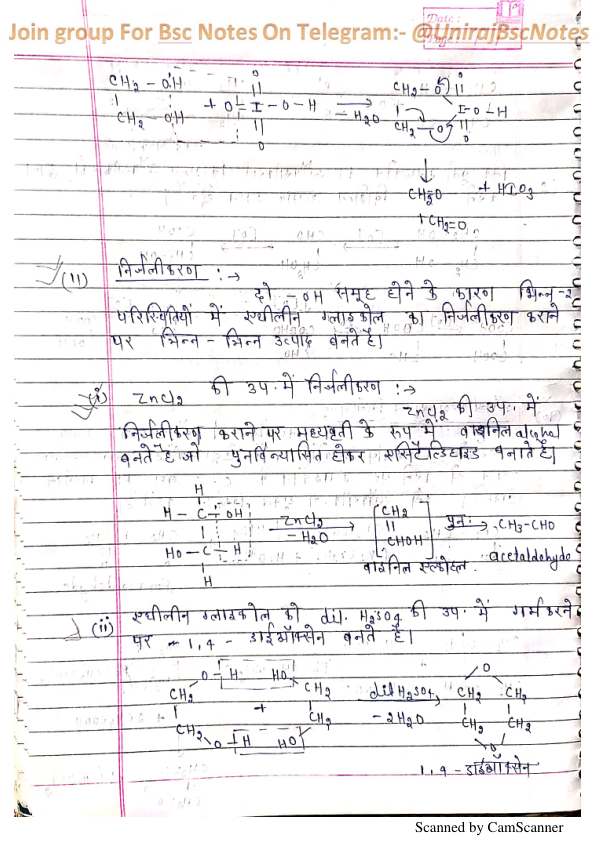 Date :
Join group For Bsc Notes On Telegram:- @UnirajBscNotes
Page :
O O
CH2 - OH || CH2 - O ||
| + O = I - O - H → | I - O - H
CH2 - OH || - H2O CH2 - O ||
O O
↓
CH2=O + HIO3
+ CH2=O
(11) निर्जलीकरण :→
दो -OH समूह होने के कारण भिन्न-2
परिस्थितियों में एथीलीन ग्लाइकोल का निर्जलीकरण कराने
पर भिन्न - भिन्न उत्पाद बनते है।
(i) ZnCl2 की उप. में निर्जलीकरण :→
ZnCl2 की उप. में
निर्जलीकरण कराने पर मध्यवृती के रूप में वाइनिल alcohol
बनते है जो पुनर्विन्यासित होकर एसिटैल्डिहाइड बनाते है।
H
|
H - C - OH ZnCl2 [CH2 पुनः → CH3-CHO
| → ||
HO - C - H - H2O CHOH] acetaldehyde
| वाइनिल एल्कोहल
H
(ii) एथीलीन ग्लाइकोल को dil. H2SO4 की उप. में गर्म करने
पर 1,4 - डाईऑक्सेन बनते है।
O - H HO O
CH2 CH2 dil H2SO4 CH2 CH2
| + | → | |
CH2 CH2 - 2H2O CH2 CH2
O - H HO O
1,4 - डाईऑक्सेन
Scanned by CamScanner